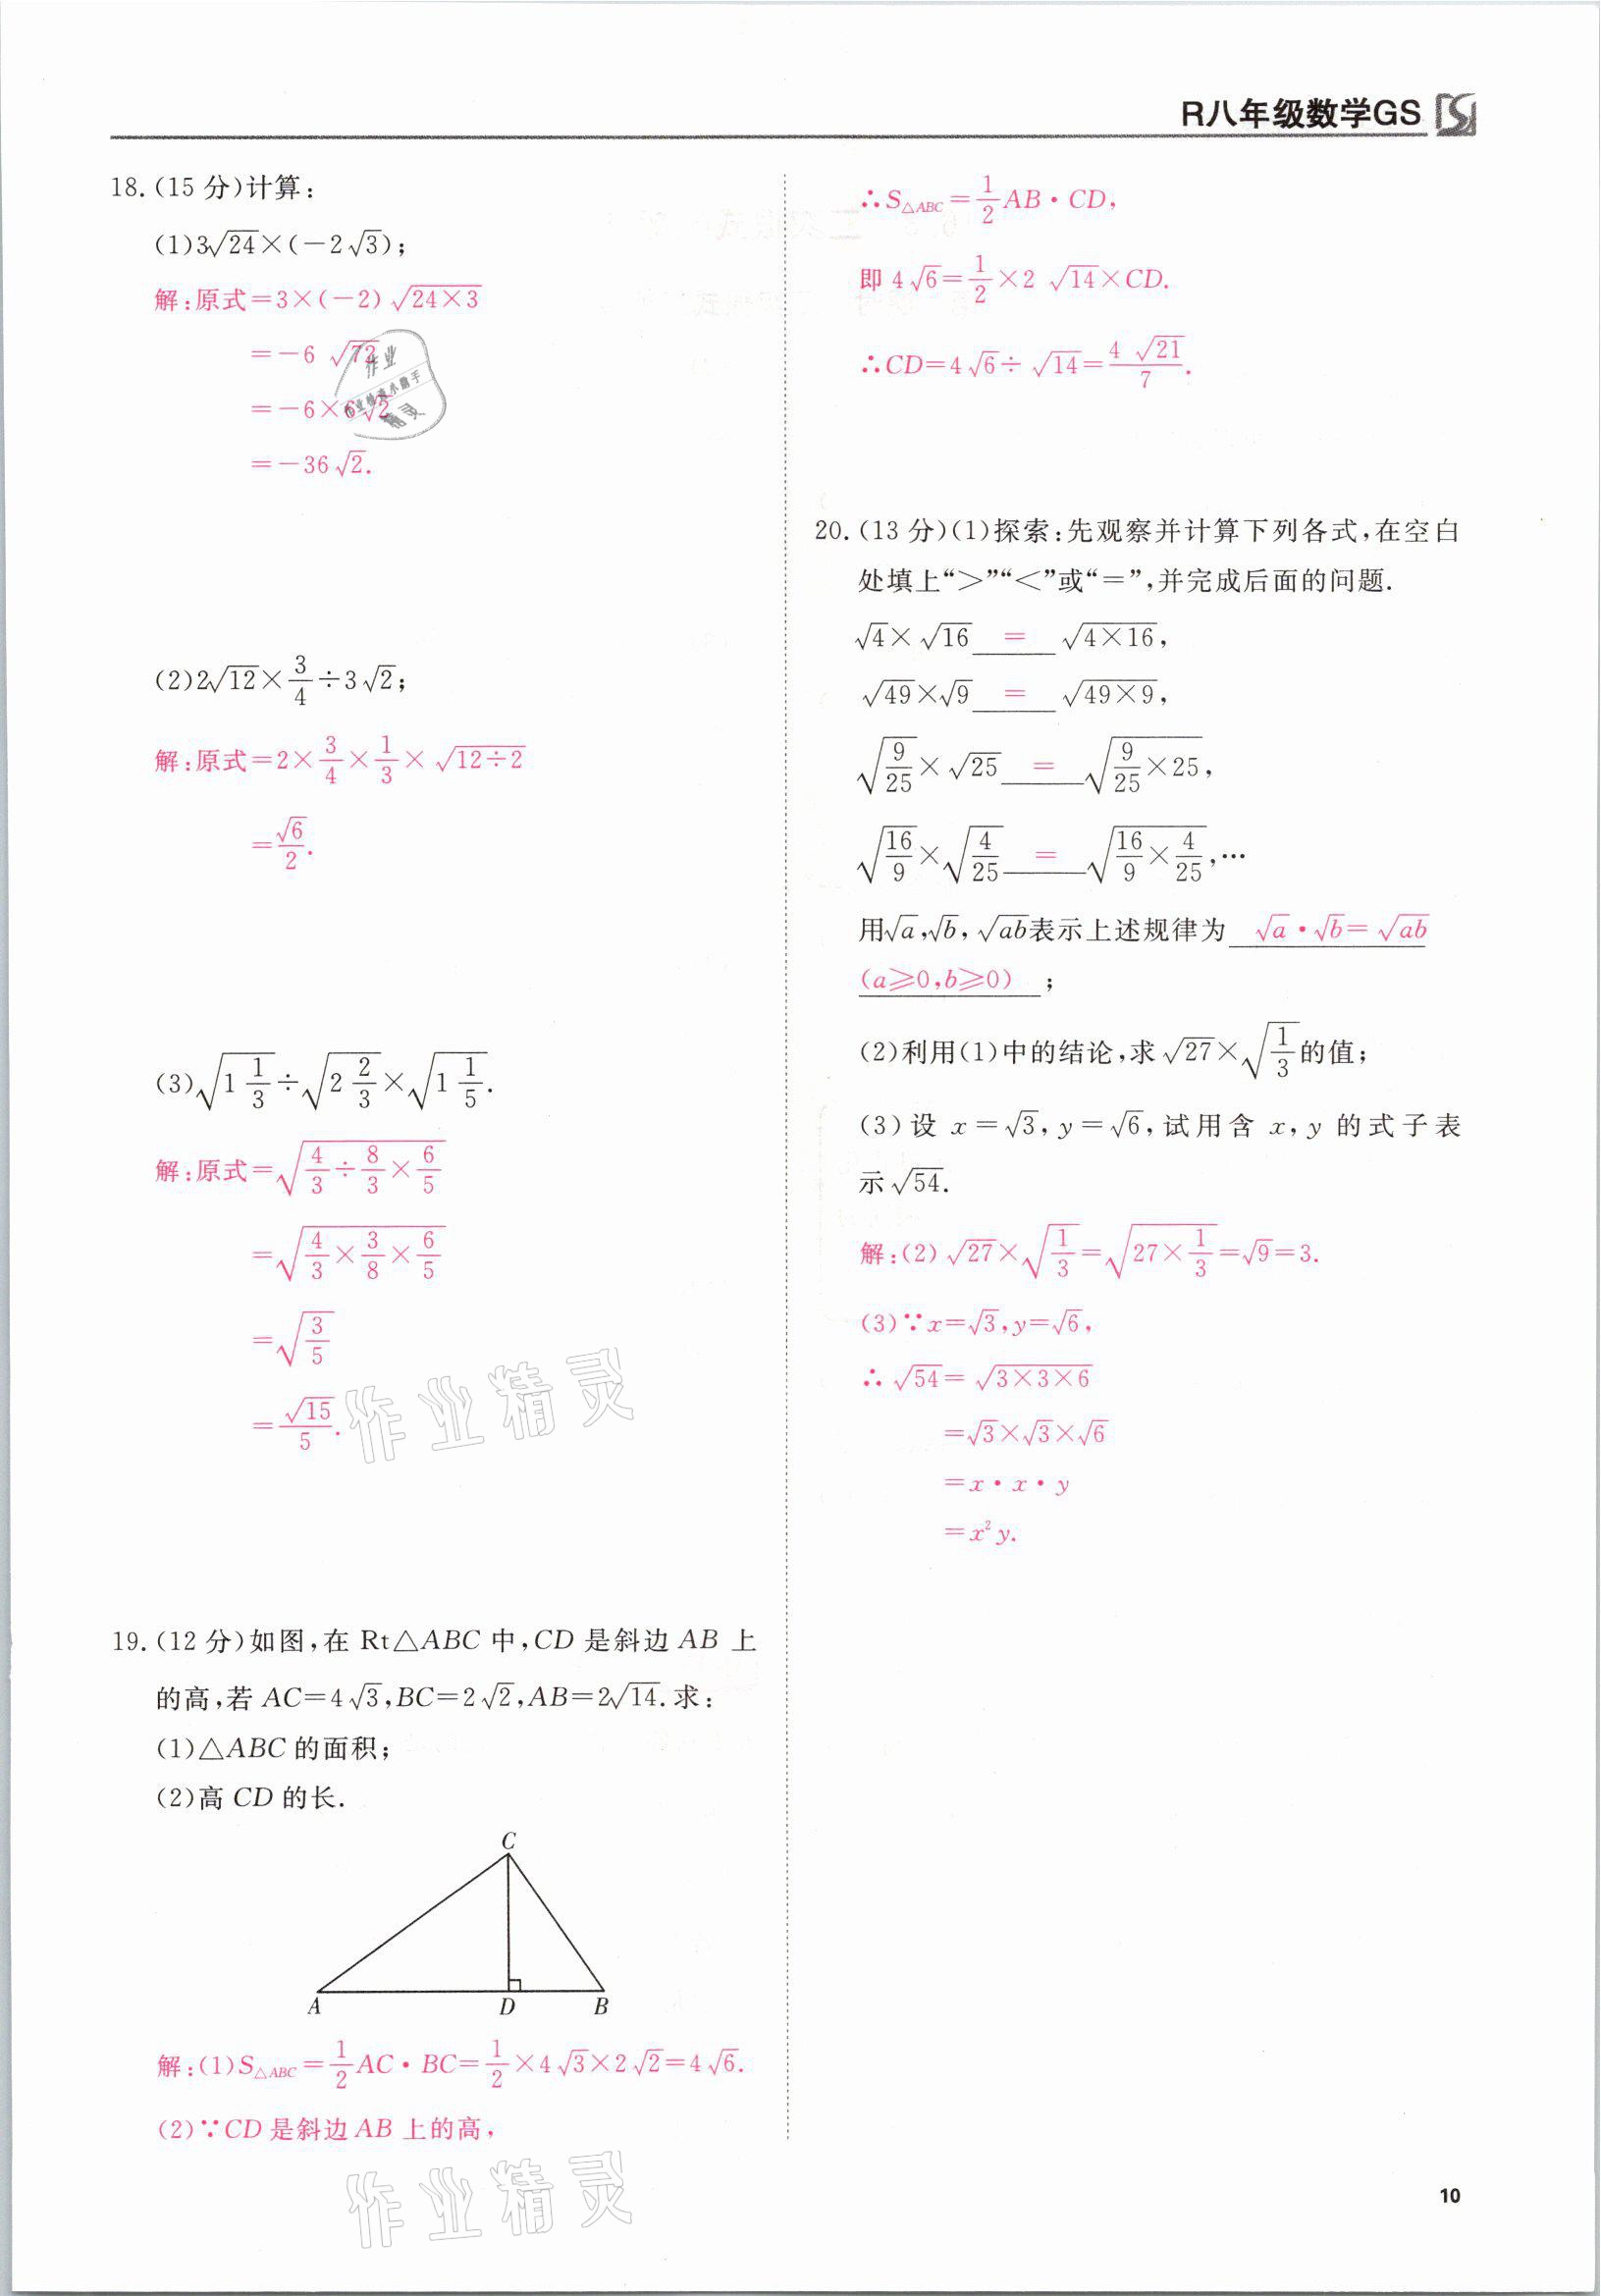 R八年级数学GS
18.(15 分)计算:
(1)3√24×(-2√3);
解:原式=3×(-2)√(24×3)
=-6√72
=-6×6√2
=-36√2.
(2)2√12×3/4÷3√2;
解:原式=2×3/4×1/3×√(12÷2)
=√6/2.
(3)√(1 1/3)÷√(2 2/3)×√(1 1/5).
解:原式=√(4/3÷8/3×6/5)
=√(4/3×3/8×6/5)
=√(3/5)
=√15/5.
19.(12 分)如图,在 Rt△ABC 中,CD 是斜边 AB 上
的高,若 AC=4√3,BC=2√2,AB=2√14.求:
(1)△ABC 的面积;
(2)高 CD 的长.
C
A D B
解:(1)S△ABC=1/2AC·BC=1/2×4√3×2√2=4√6.
(2)∵CD 是斜边 AB 上的高,
∴S△ABC=1/2AB·CD,
即 4√6=1/2×2√14×CD.
∴CD=4√6÷√14=4√21/7.
20.(13 分)(1)探索:先观察并计算下列各式,在空白
处填上“>”“<”或“=”,并完成后面的问题.
√4×√16 = √(4×16),
√49×√9 = √(49×9),
√(9/25)×√25 = √(9/25×25),
√(16/9)×√(4/25) = √(16/9×4/25),…
用√a,√b,√ab表示上述规律为 √a·√b=√ab
(a≥0,b≥0) ;
(2)利用(1)中的结论,求√27×√(1/3)的值;
(3)设 x=√3,y=√6,试用含 x,y 的式子表
示√54.
解:(2)√27×√(1/3)=√(27×1/3)=√9=3.
(3)∵x=√3,y=√6,
∴√54=√(3×3×6)
=√3×√3×√6
=x·x·y
=x²y.
作业
作业检查小帮手
精灵
作业精灵
作业精灵
10